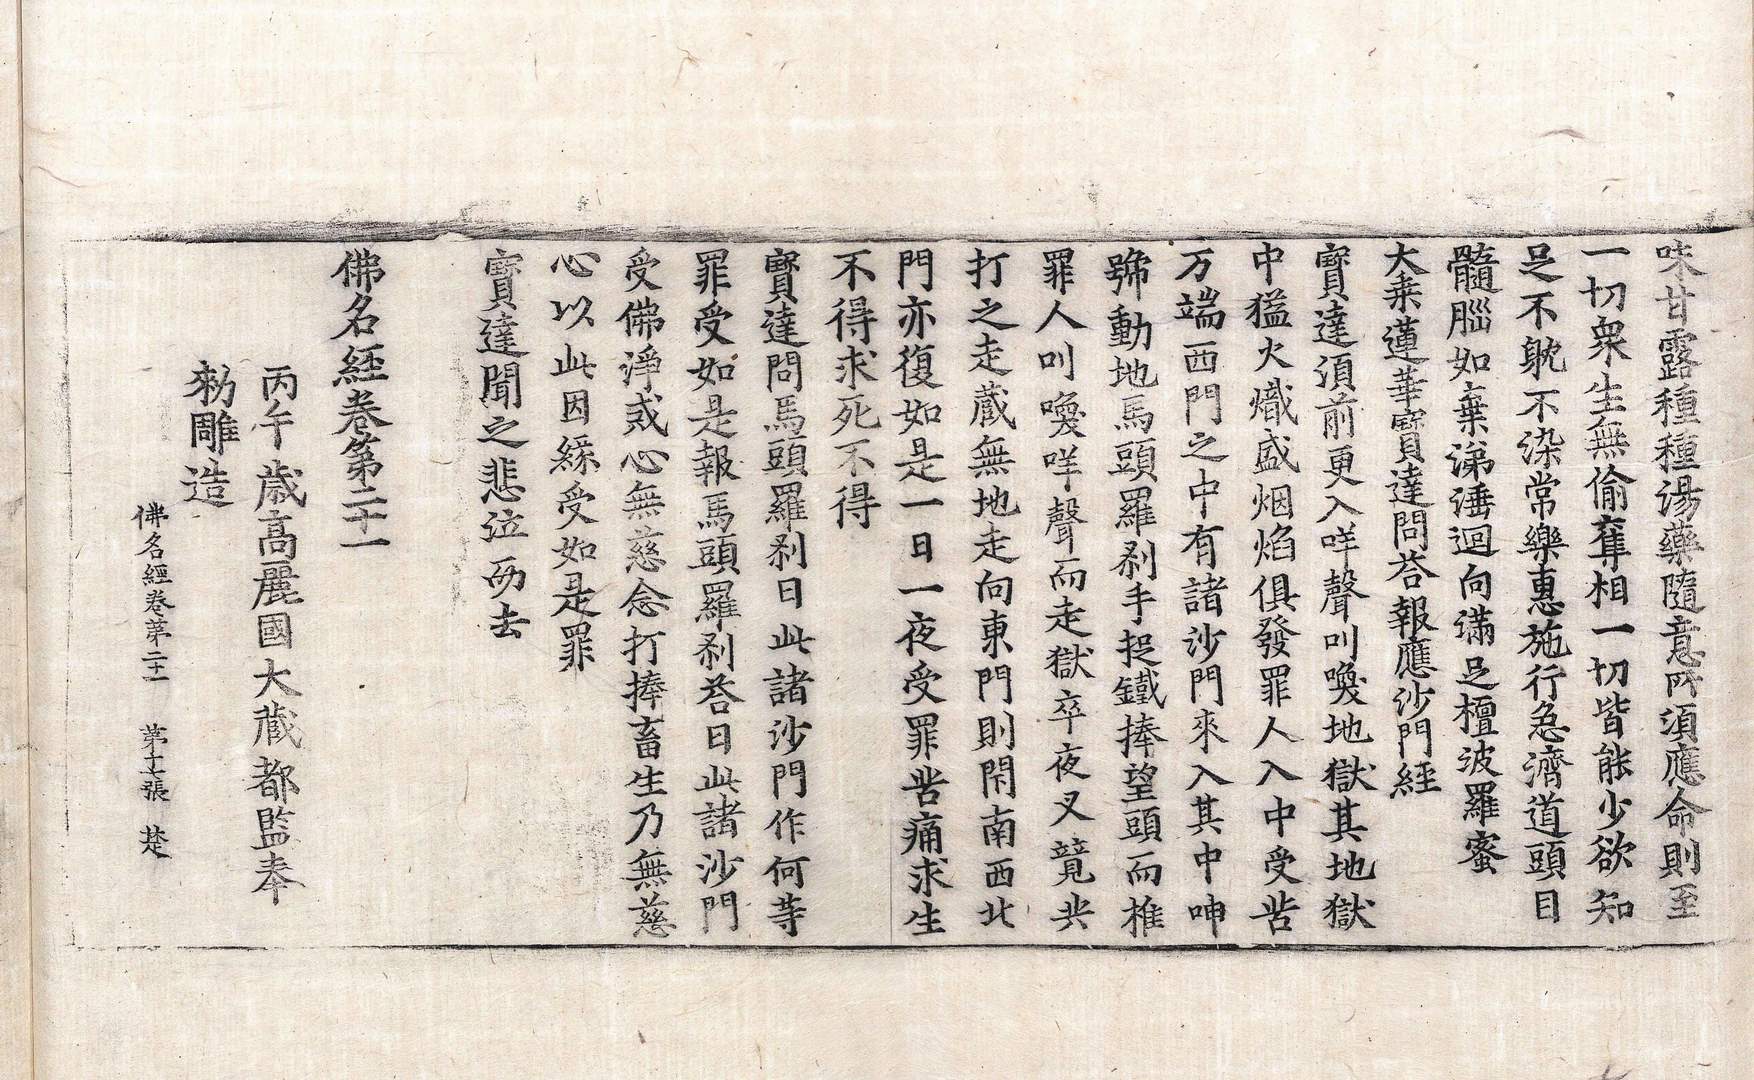 味甘露種種湯藥隨意所須應命則至
一切衆生無偷奪相一切皆能少欲知
足不躭不染常樂惠施行急濟道頭目
髓腦如棄涕唾迴向滿足檀波羅蜜
大乘蓮華寶達問荅報應沙門經
寶達須前更入咩聲叫喚地獄其地獄
中猛火熾盛烟焰俱發罪人入中受苦
万端西門之中有諸沙門來入其中呻
號動地馬頭羅刹手捉鐵捧望頭而搥
罪人叫喚咩聲而走獄卒夜叉竟共
打之走藏無地走向東門則閇南西北
門亦復如是一日一夜受罪苦痛求生
不得求死不得
寶達問馬頭羅刹曰此諸沙門作何等
罪受如是報馬頭羅刹荅曰此諸沙門
受佛淨戒心無慈念打捧畜生乃無慈
心以此因緣受如是罪
寶達聞之悲泣而去
佛名經卷第二十一
丙午歲高麗國大藏都監奉
勑雕造
佛名經卷第二十一 第十七張 楚